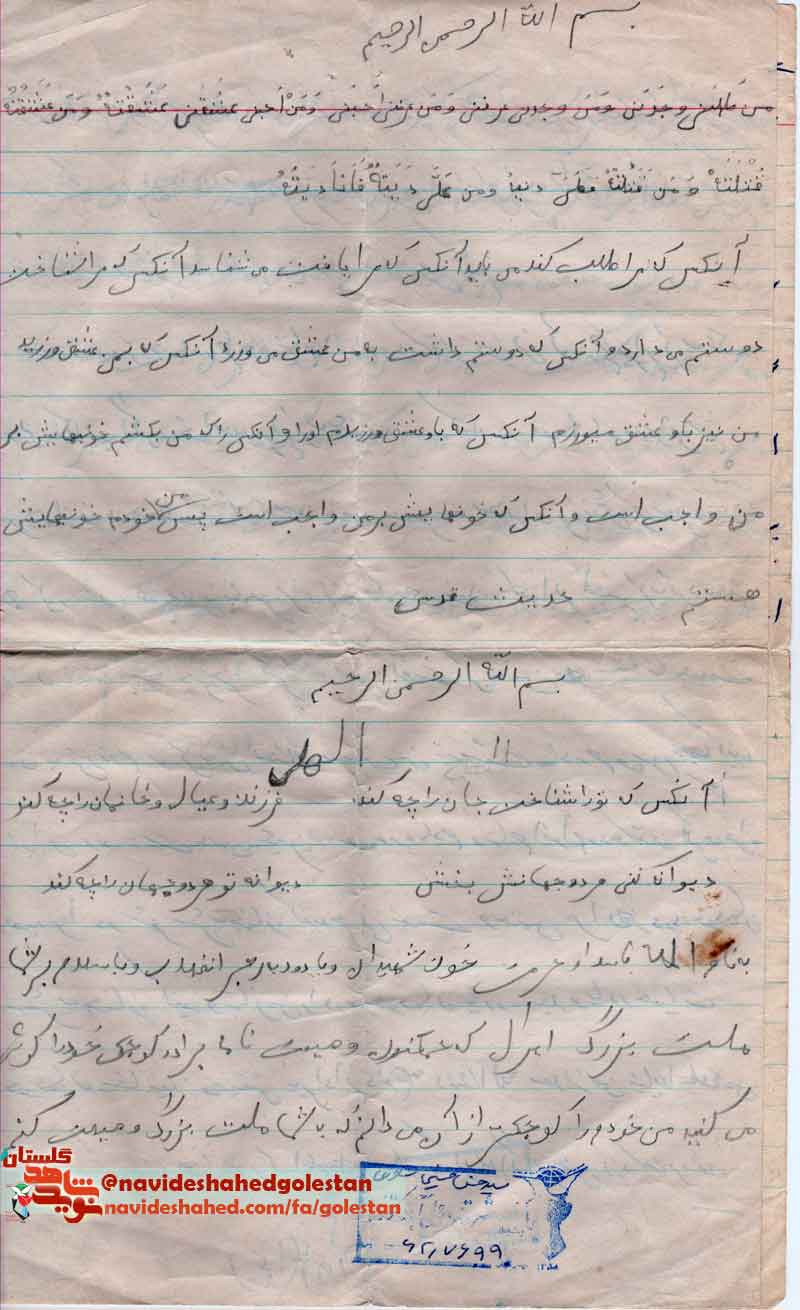 بسم الله الرحمن الرحیم
من طلبنی وجدنی و من وجدنی عرفنی و من عرفنی اَحبّنی و من اَحبنی عشقنی عَشَقْتَهُ و من عشقتهُ
قتلتهُ و من قتلتهُ فعلیَّ دیتهُ و من علیَّ دیتهُ فانا دیتهُ
آنکس که مرا طلب کند می یابد آنکس که مرا یافت می شناسد آنکس که مرا شناخت
دوستم می دارد و آنکس که دوستم داشت به من عشق می ورزد آنکس که بمن عشق ورزید
من نیز باو عشق میورزم آنکس که باو عشق ورزیدم اورا و آنکس را که من بکشم خونبهایش بر
من واجب است و آنکس که خونبهایش برمن واجب است پس من خودم خونبهایش
هستم حدیث قدسی
بسم الله الرحمن الرحیم
الهی
آنکس که تورا شناخت جان را چه کند فرزند و عیال و خانمان را چه کند
دیوانه کنی هر دو جهانش بخشی دیوانه تو هر دو جهان را چه کند
به نام الله پاسدار حرمت خون شهیدان و با درود بر رهبر انقلاب و با سلام بر شما
ملت بزرگ ایران که هم اکنون وصیت نامه برادر کوچک خود را گوش
می کنید من خود را کوچکتر از آن می دانم که با شما ملت بزرگ وصیت کنم
گلستان
نوید شاهد
@navideshahedgolestan
navideshahed.com/fa/golestan